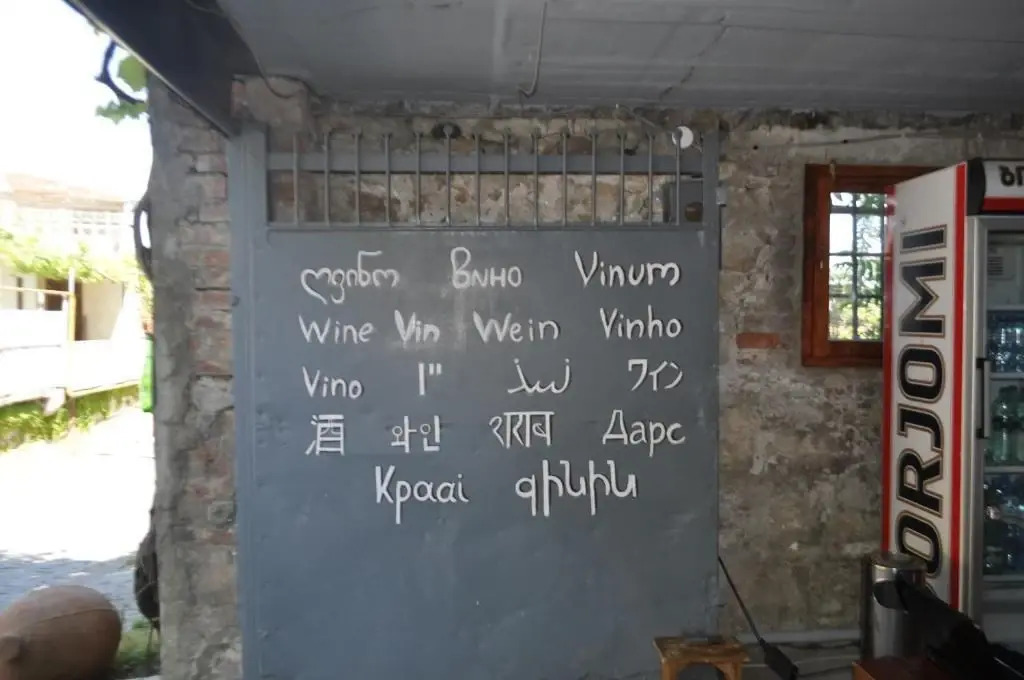 ღვინო вино Vinum
Wine Vin Wein Vinho
Vino יין نبيذ ワイン
酒 와인 शराब Дарс
Κрααі գինին
BORJOMI